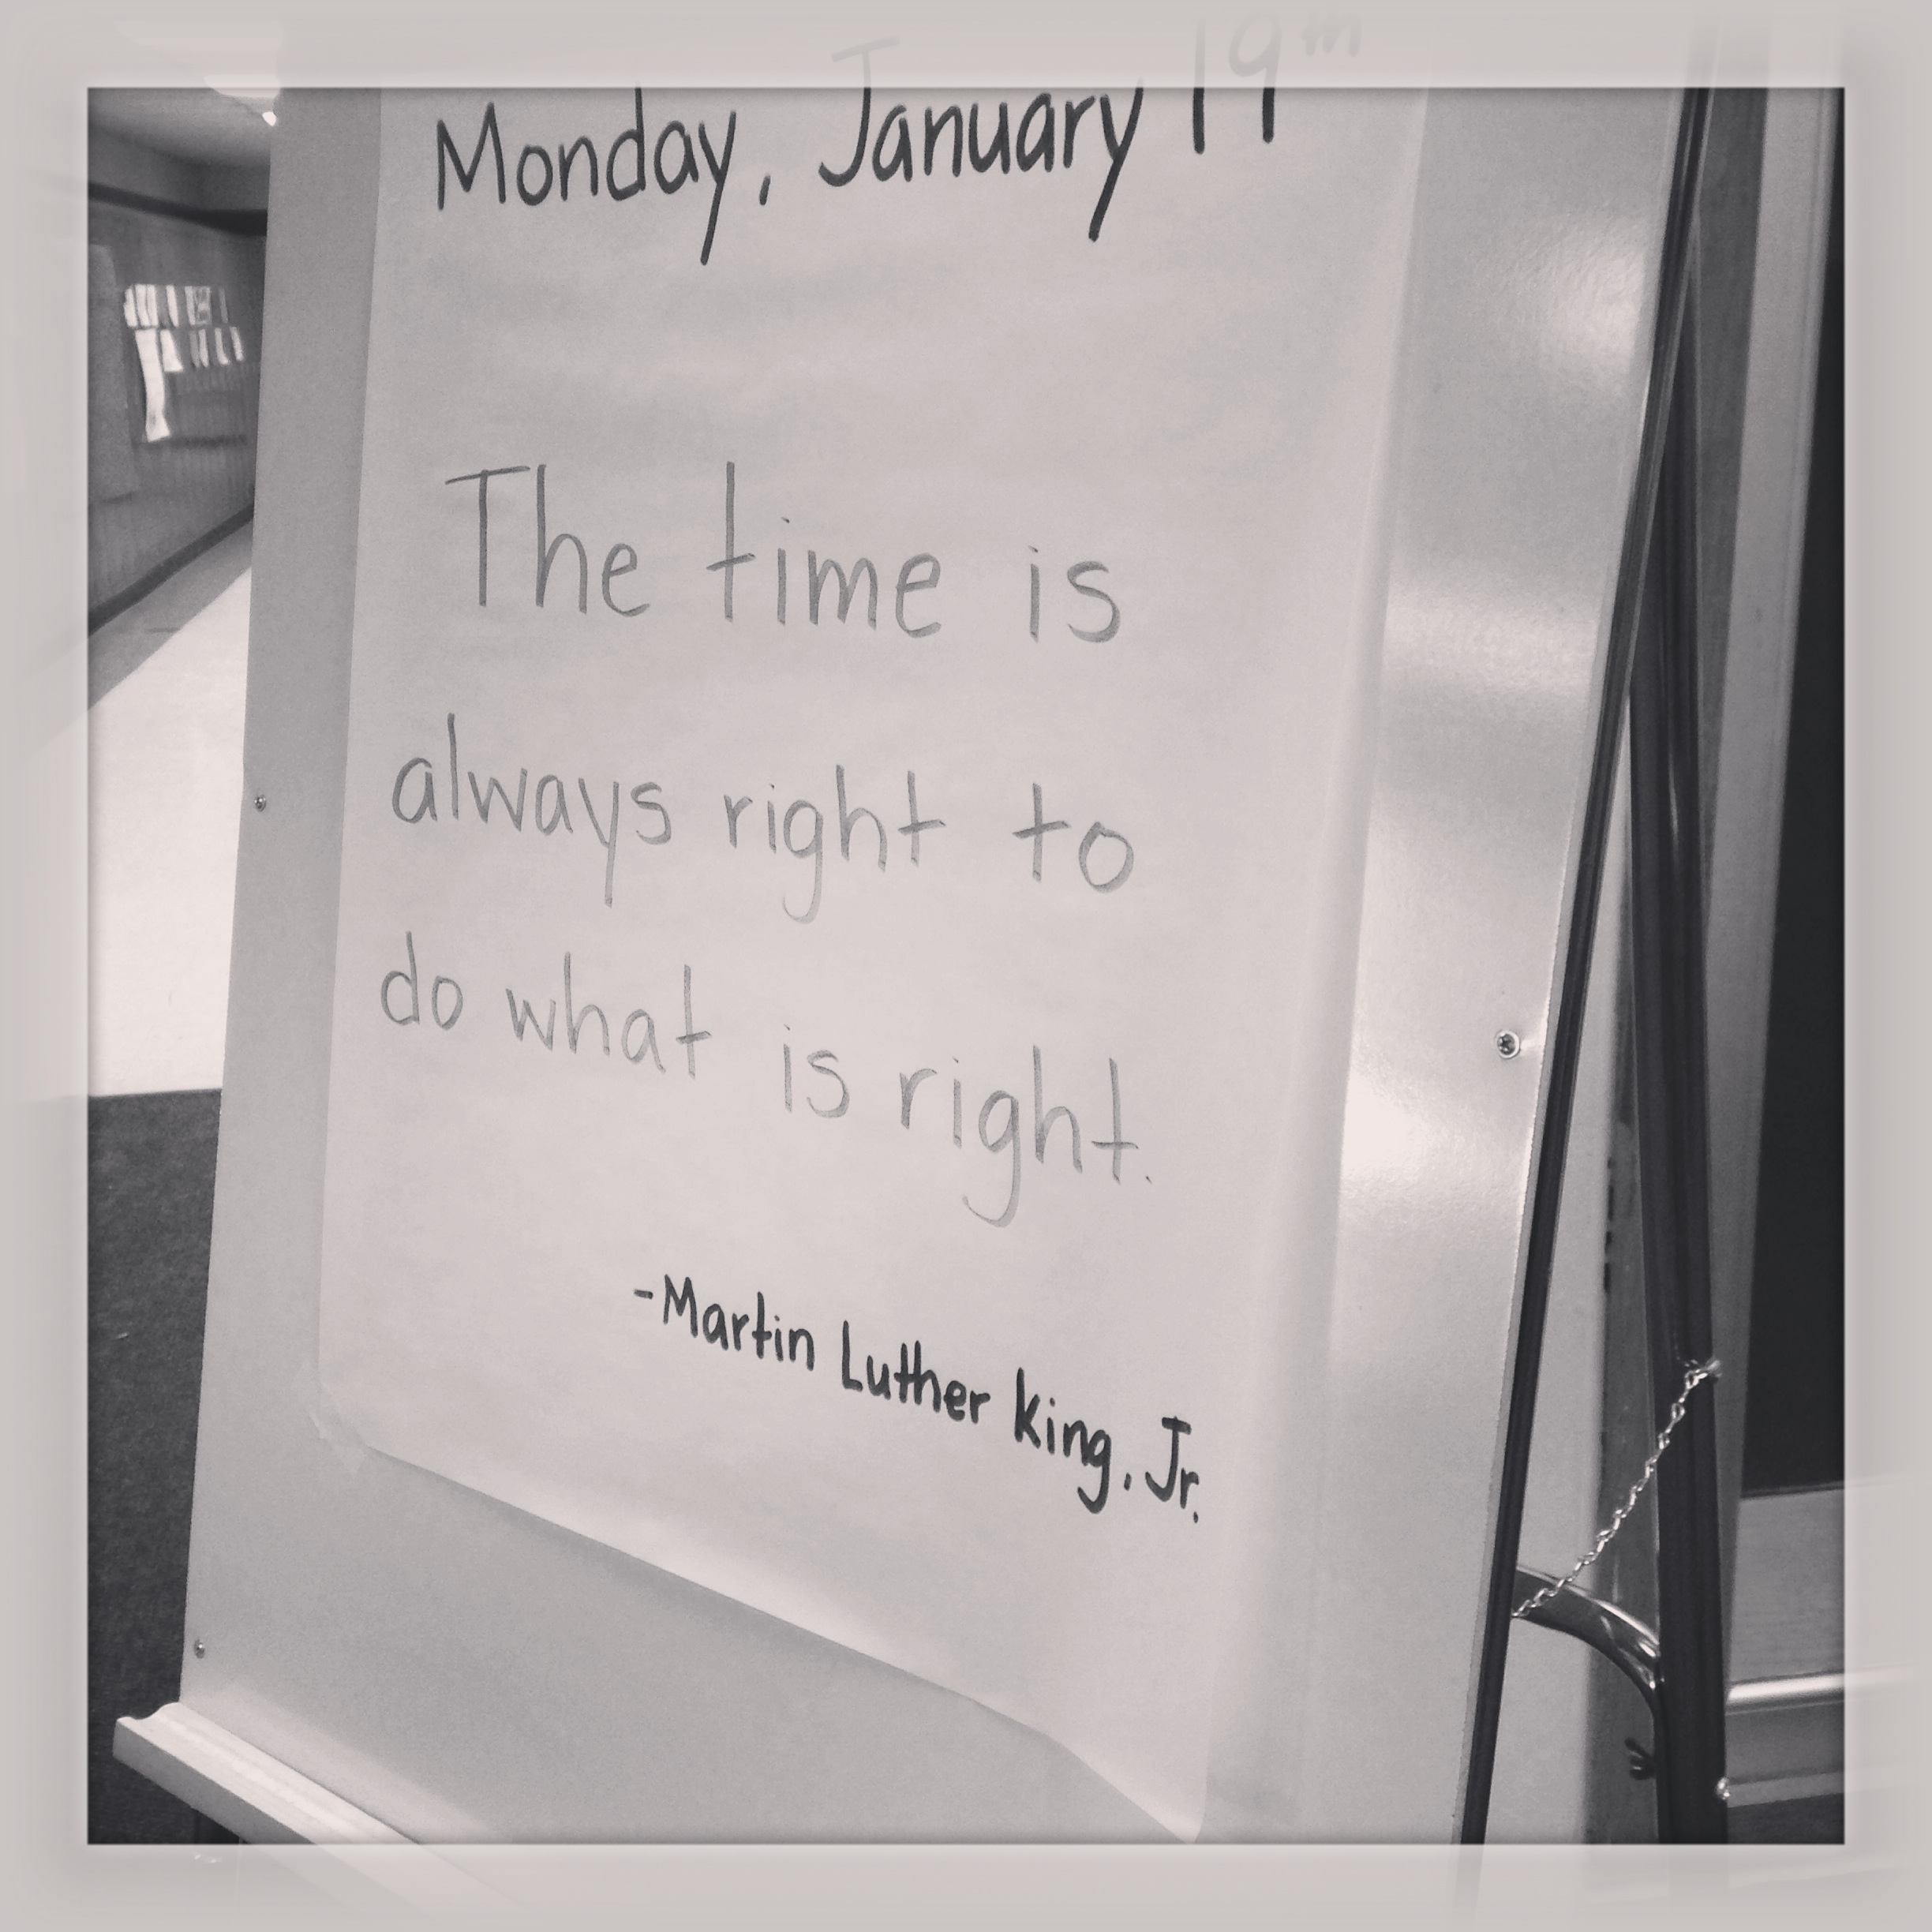 Monday, January 19th
The time is
always right to
do what is right.
-Martin Luther King, Jr.